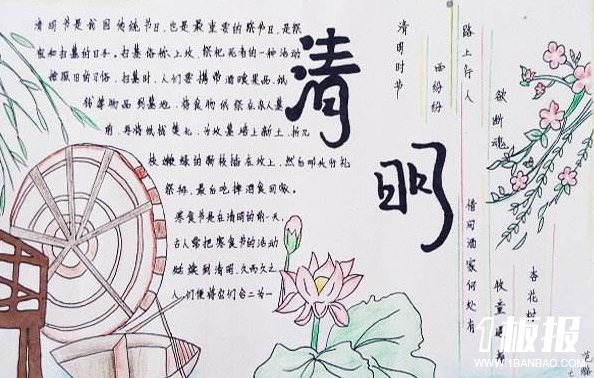 清明节是我国传统节日，也是最重要的祭节日，是祭
祖和扫墓的日子。扫墓俗称上坟，祭祀死者的一种活动
按照旧的习俗，扫墓时，人们要携带酒食果品，纸
钱等物品到墓地，将食物供祭在亲人墓
前，再将纸钱焚化，为坟墓培上新土，折几
枝嫩绿的新枝插在坟上，然后叩头行礼
祭拜，最后吃掉酒食回家。
寒食节是在清明的前一天，
古人常把寒食节的活动
延续到清明，久而久之
人们便将它们合二为一
清明
清明时节
雨纷纷
路上行人
欲断魂
借问酒家何处有
牧童遥
杏花村
1板报
WWW.1BANBAO.COM